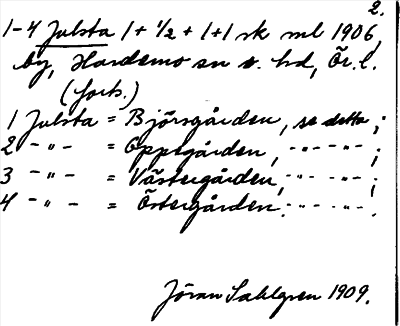 2.
1-4 Julsta 1 + 1/2 + 1 + 1 sk ml 1906,
by, Hardemo sn o. hd, Ör. l.
(forts.)
1 Julsta = Björsgården, se detta;
2 - " - = Oppegården, - " - - " - ;
3 - " - = Västergården, - " - - " - ;
4 - " - = Östergården. - " - - " - .
Jöran Sahlgren 1909.